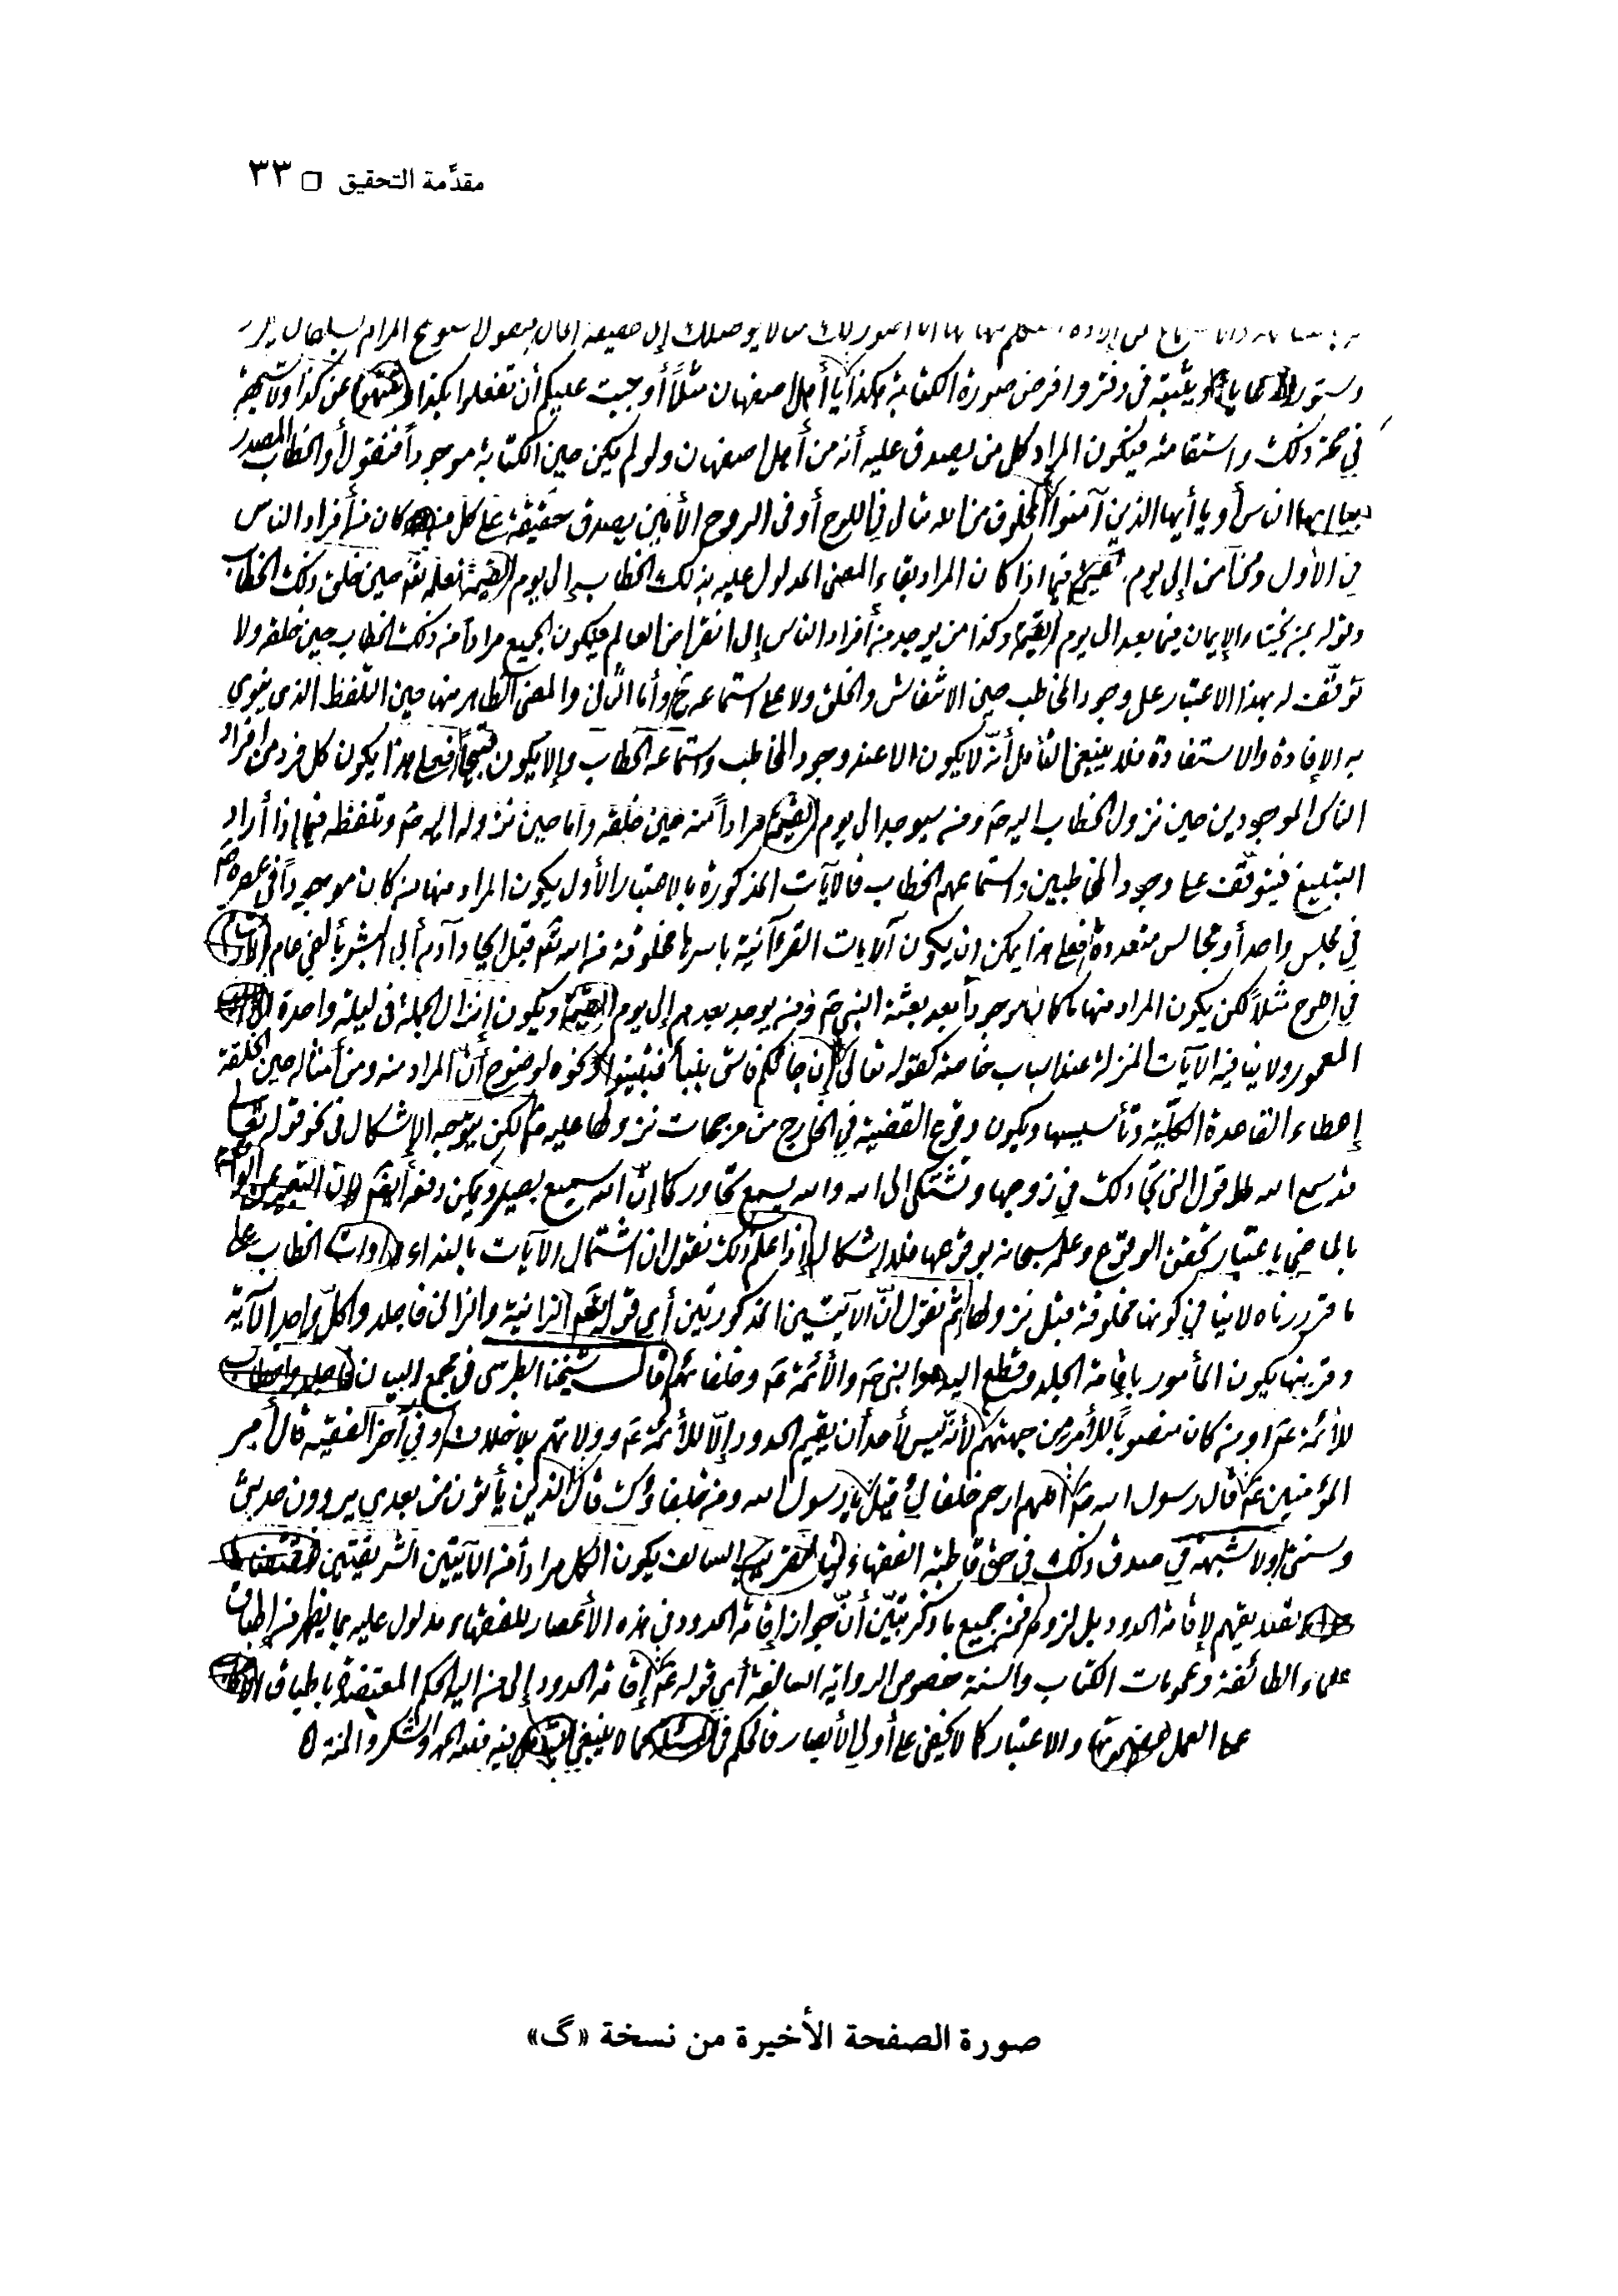 مقدَّمة التحقيق □ ٣٣
إلى حقيقة الحال بحصول المرام
ويثبته في دفتر وافرض صورة الكتابة هكذا يا أهل اصفهان مثلاً أوجبت عليكم أن تفعلوا كذا عن كذا ولا شبهة
في صحة ذلك واستقامته فيكون المراد كل من يصدق عليه أنه من أهل اصفهان ولو لم يكن حين الكتابة موجوداً فنقول أن الخطاب المصدر
الناس أو يا أيها الذين آمنوا المخلوق من الله تعالى في اللوح أو في الروح الأمين يصدق حقيقة على كل من كان من أفراد الناس
في الأول ومن آمن إلى يوم القيمة فيما إذا كان المراد بقاء المعنى المدلول عليه بذلك الخطاب إلى يوم القيمة لعلمه تعم حين خلق ذلك الخطاب
الإيمان فيما بعد إلى يوم القيمة وكذا من يوجد من أفراد الناس إلى انقراض العالم فيكون الجميع مراداً من ذلك الخطاب حين خلقه ولا
توقّف له بهذا الاعتبار على وجود المخاطب حين الانتقاش والخلق ولا على استماعه وأما الثاني والمعنى الظاهر منها حين التلفظ الذي ينوي
به الإفادة والاستفادة فلا ينبغي التأمل أنّه لا يكون إلا عند وجود المخاطب واستماعه الخطاب وإلا يكون قبيحاً فعلى هذا يكون كل فرد من أفراد
الناس الموجودين حين نزول الخطاب إليه صم ومن سيوجد إلى يوم القيمة مراداً منه حين خلقه وأما حين نزوله إليه صم وتلفظه فيما إذا أراد
التبليغ فيتوقّف على وجود المخاطبين واستماعهم الخطاب فالآيات المذكورة بالاعتبار الأول يكون المراد منها من كان موجوداً في عصره صم
في مجلس واحد أو مجالس متعددة فعلى هذا يمكن أن يكون الآيات القرآنية بأسرها مخلوقة من الله تعم قبل إيجاد آدم أبي البشر بألفي عام
في اللوح مثلاً لكن يكون المراد منها ما كان موجوداً بعد بعثة النبي صم ومن يوجد بعدهم إلى يوم القيمة ويكون إنزال الجملة في ليلة واحدة
المعمور ولا ينافيه الآيات المنزلة عند أسباب خاصة كقوله تعالى إن جاءكم فاسق بنبأ فتبينوا ونحوه لوضوح أن المراد منه ومن أمثاله حين الخلقة
إعطاء القاعدة الكلّية وتأسيسها ويكون وقوع القضية في الخارج من مرجحات نزولها عليه صم لكن يتوجه الإشكال في نحو قوله تعالى
قد سمع الله قول التي تجادلك في زوجها وتشتكي إلى الله والله يسمع تحاوركما إنّ الله سميع بصير ويمكن دفعه أيضاً لأن التعبير عن الواقعة
بالماضي باعتبار تحقق الوقوع وعلمه سبحانه بوقوعها فلا إشكال إذا علم ذلك نقول إن اشتمال الآيات بالنداء وأدوات الخطاب على
ما قررناه لا ينافي كونها مخلوقة قبل نزولها ثم نقول إنّ الآيتين المذكورتين أي قوله تعم الزانية والزاني فاجلدوا كلّ واحد الآية
وقرينها يكون المأمور بإقامة الجلد وقطع اليد هو النبي صم والأئمة عم وخلفائهم قال شيخنا الطبرسي في مجمع البيان
للأئمة عم أو من كان منصوباً للأمر من جهتهم لأنّه ليس لأحد أن يقيم الحدود إلّا للأئمة عم وولاتهم بلا خلاف وفي آخر الفقيه قال أمير
المؤمنين عم قال رسول الله صم اللهم ارحم خلفائي قيل يا رسول الله ومن خلفاؤك قال الذين يأتون من بعدي يروون حديثي
وسنتي ولا شبهة في صدق ذلك في حق قاطبة الفقهاء السالف يكون الكل مراداً من الآيتين الشريفتين
لإقامة الحدود بل لزومه فمن جميع ما ذكر تبيّن أنّ جواز إقامة الحدود في هذه الأعصار للفقهاء مدلول عليه بما يظهر من إطباق
علماء الطائفة وعمومات الكتاب والسنة خصوص الرواية السالفة أي قوله عم إقامة الحدود إلى من إليه الحكم المعتضدة بإطباق
على العمل والاعتبار كما لا يخفى على أولي الأبصار فالحكم في المسئلة مما لا ينبغي فيه فلله الحمد والشكر والمنة
صورة الصفحة الأخيرة من نسخة «گ»